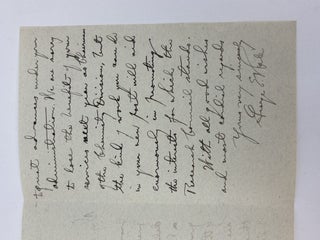 great advances under your
administration. We are sorry
to lose the benefit of your
services next year as chairman
of the Chemistry Division, but
the kind of work you can do
in your new post will aid
enormously in promoting
the interests for which the
Research Council stands.
With all good wishes
and most cordial regards
Yours very sincerely
Geo. E. Hale